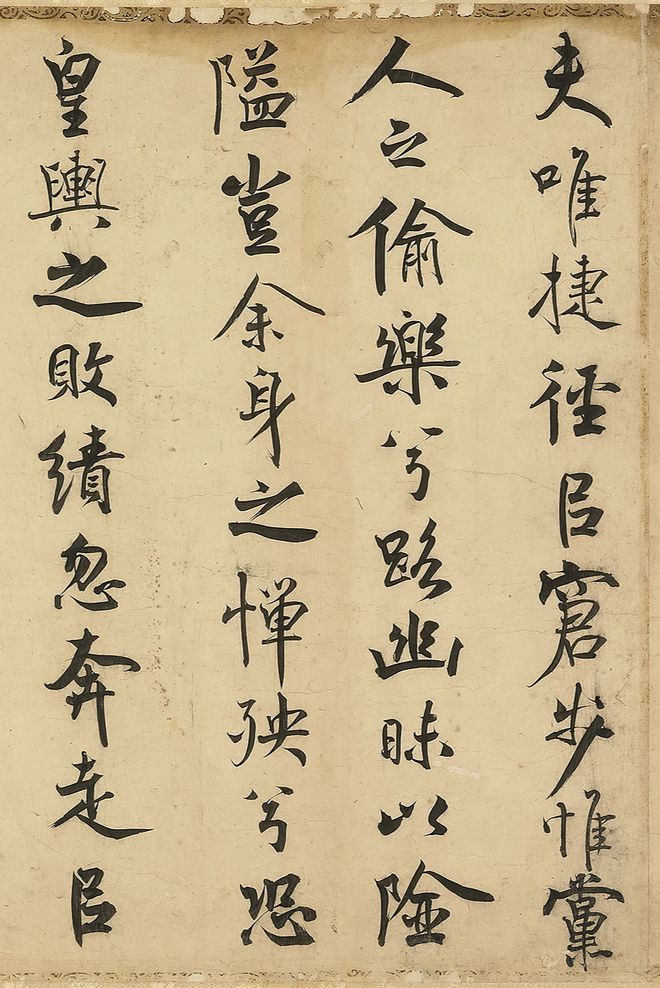 夫唯捷徑㠯窘步惟黨
人之偷樂兮路幽昧以險
隘豈余身之憚殃兮恐
皇輿之敗績忽奔走㠯